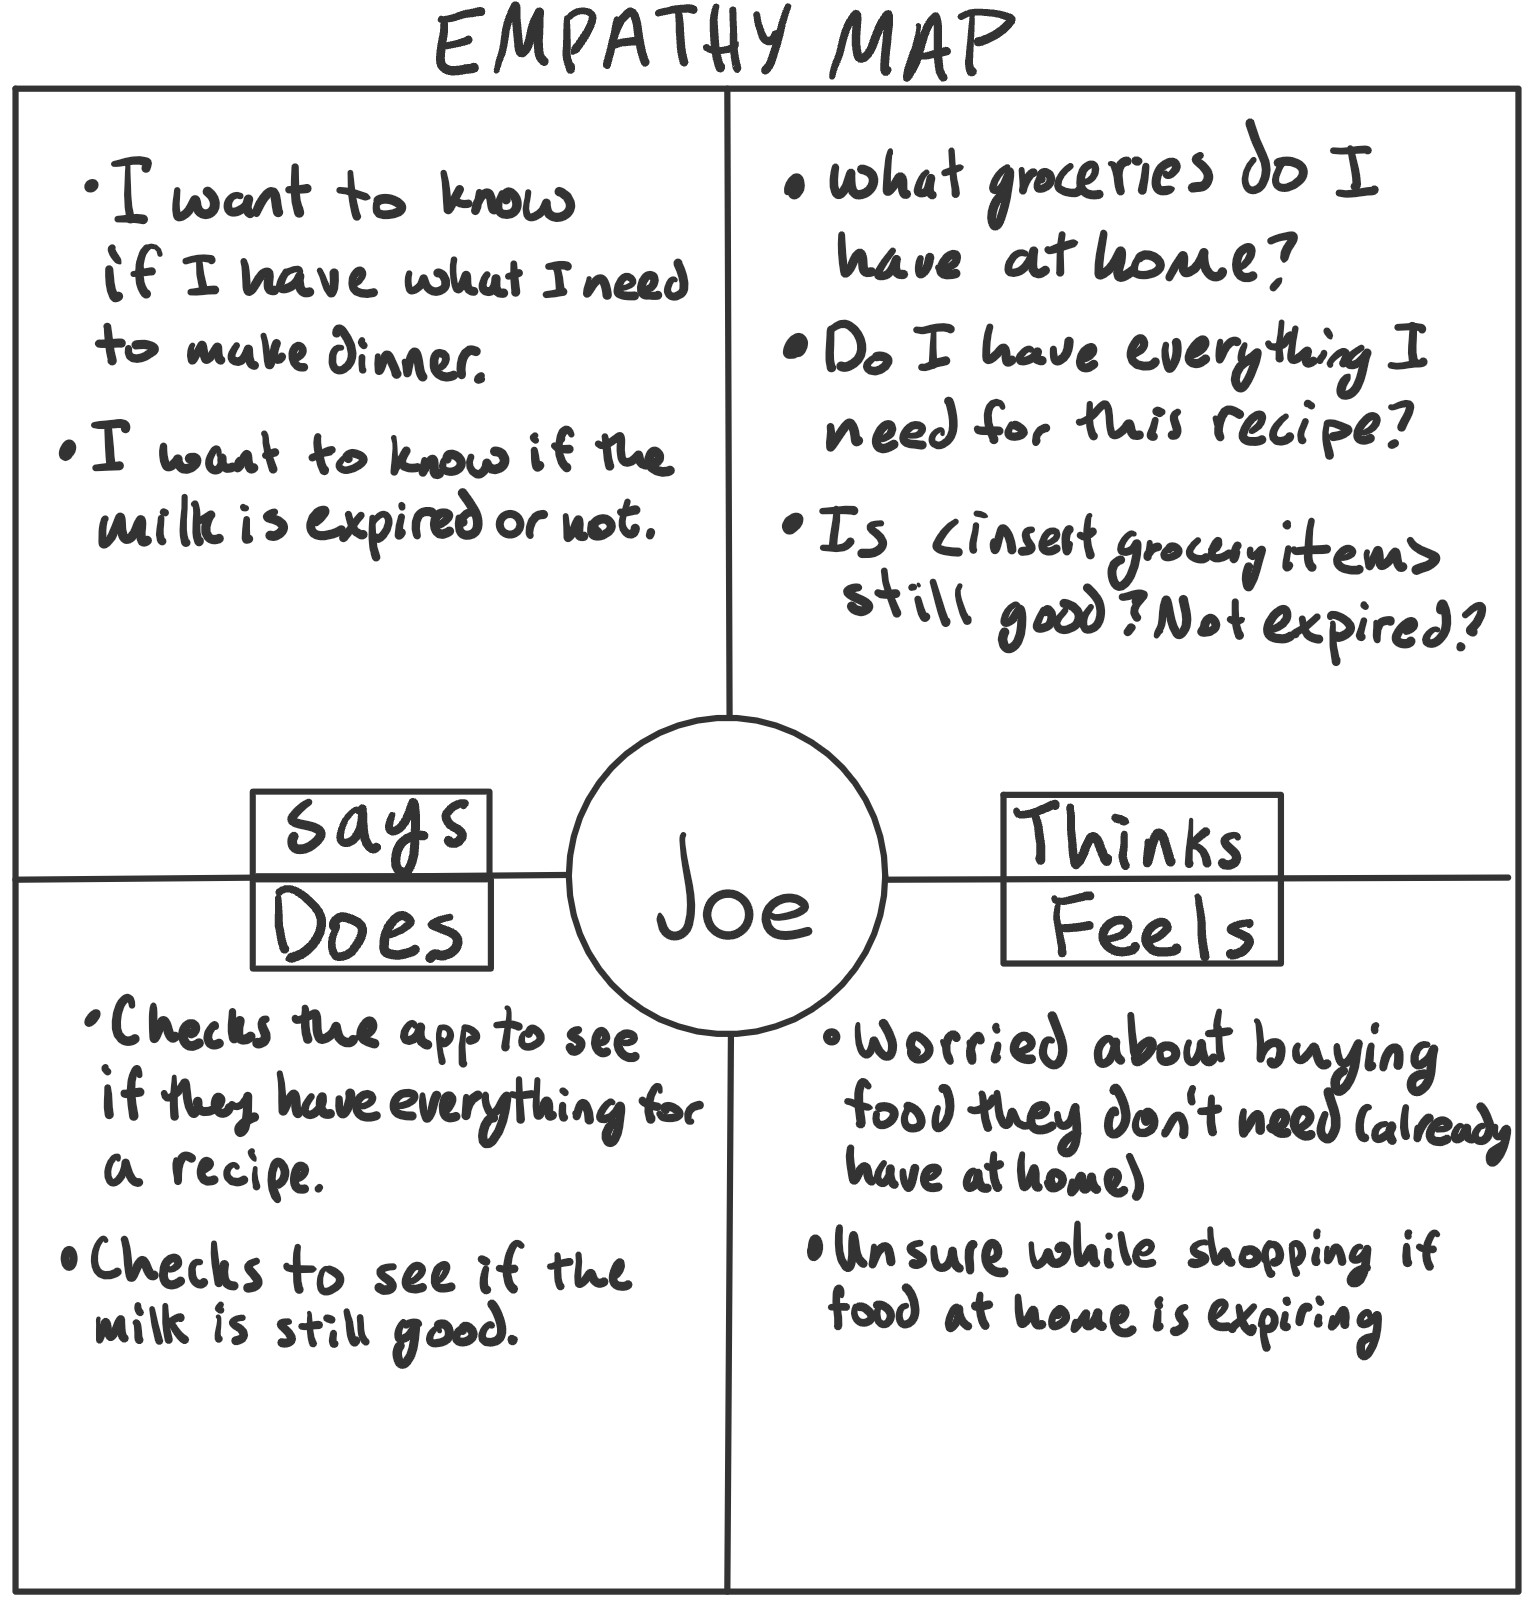 EMPATHY MAP
• I want to know
if I have what I need
to make dinner.
• I want to know if the
milk is expired or not.
• What groceries do I
have at home?
• Do I have everything I
need for this recipe?
• Is <insert grocery items>
still good? Not expired?
says
Does
Joe
Thinks
Feels
• Checks the app to see
if they have everything for
a recipe.
• Checks to see if the
milk is still good.
• Worried about buying
food they don't need (already
have at home)
• Unsure while shopping if
food at home is expiring